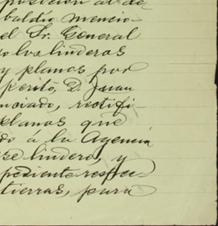 posición al de
baldío mencio
el Sr. General
los linderos
y planos por
perito, D. Juan
rectifi-
planos que
do á la Agencia
ese lindero, y
pediente respec-
tierras, para